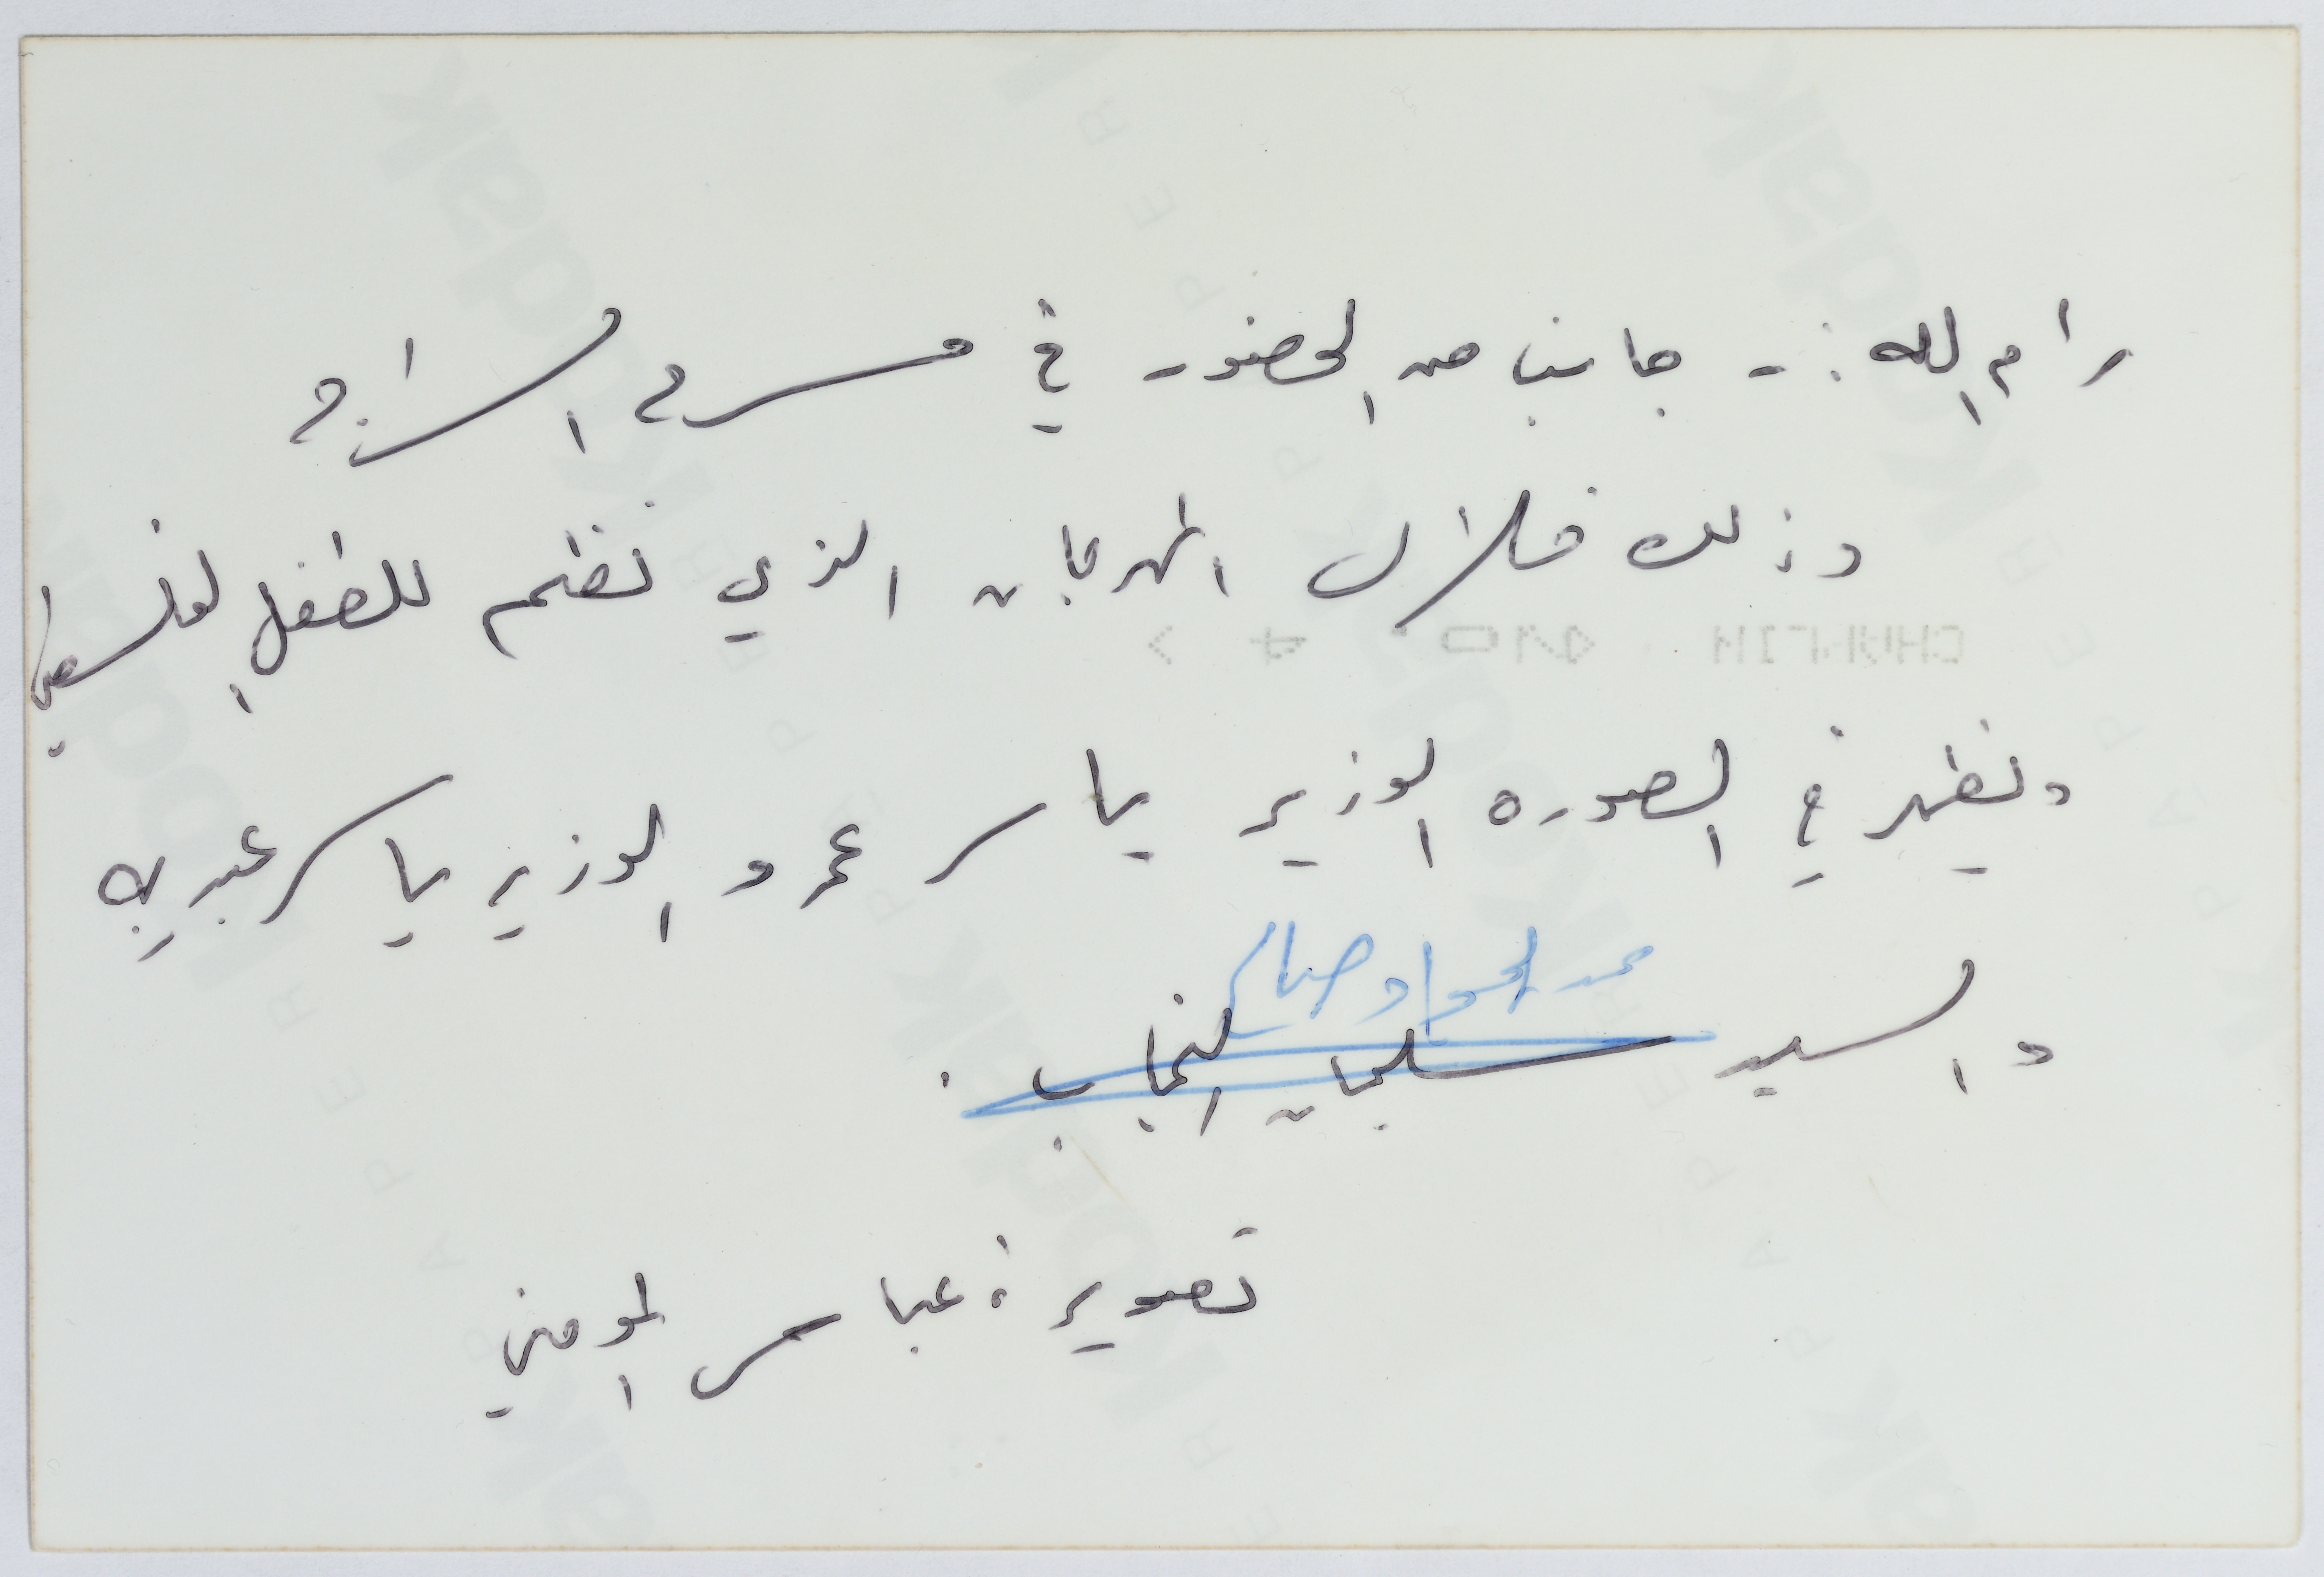 رام الله :- جانب من الحضور في مسرح السراج
وذلك خلال المهرجان الذي نظم للطفل الفلسطيني
ويظهر في الصوره الوزير ياسر عمرو الوزير ياسر عبد ربه
عبد الجواد صالح
والسيد سليمان النجاب .
تصوير : عباس المومني
Kodak
PAPER